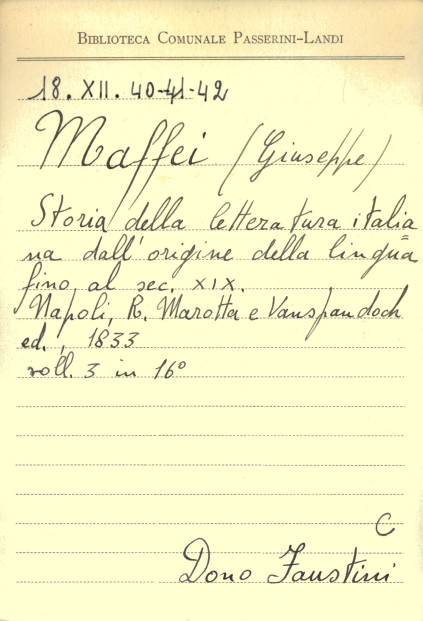 BIBLIOTECA COMUNALE PASSERINI-LANDI
18. XII. 40-41-42
Maffei (Giuseppe)
Storia della letteratura italia
na dall'origine della lingua
fino al sec. XIX.
Napoli, R. Marotta e Vanspandoch
ed., 1833
voll. 3 in 16°
C
Dono Faustini